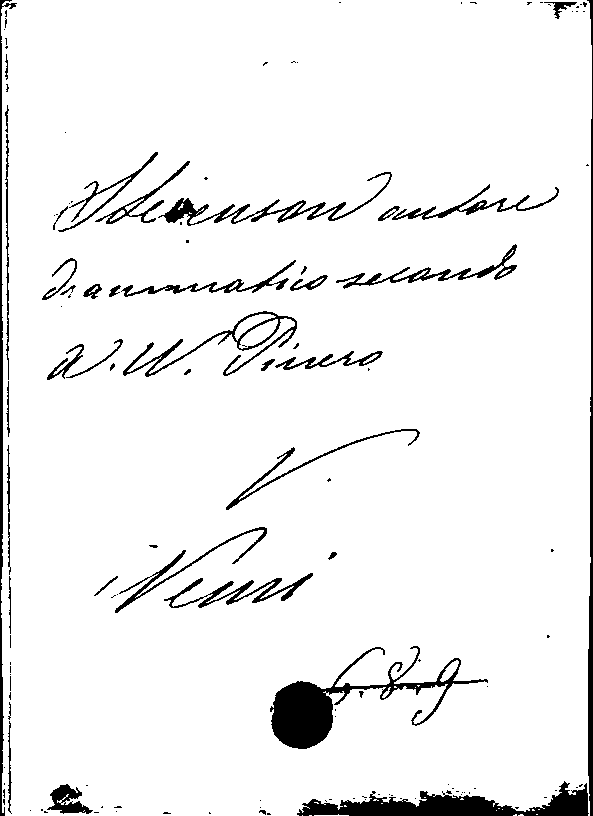 Stevenson autore
drammatico secondo
A. W. Pinero
V.
Nemi
6.8.9